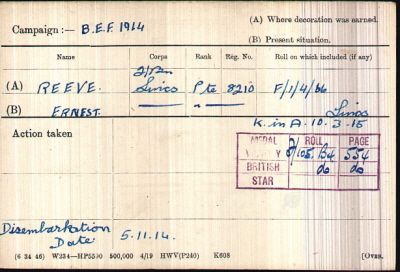 Campaign :— B.E.F. 1914
(A) Where decoration was earned.
(B) Present situation.
Name Corps Rank Reg. No. Roll on which included (if any)
2/Bn
(A) REEVE. Lincs Pte 8210 F/1/4/66
(B) ERNEST. — " — Lincs
K. in A. 10.3.15
Action taken
MEDAL ROLL PAGE
VICTORY 2/105.B4 554
BRITISH do do
STAR
Disembarkation
Date 5.11.14.
(6 34 46) W234—HP5590 500,000 4/19 HWV(P240) K608 [Over.